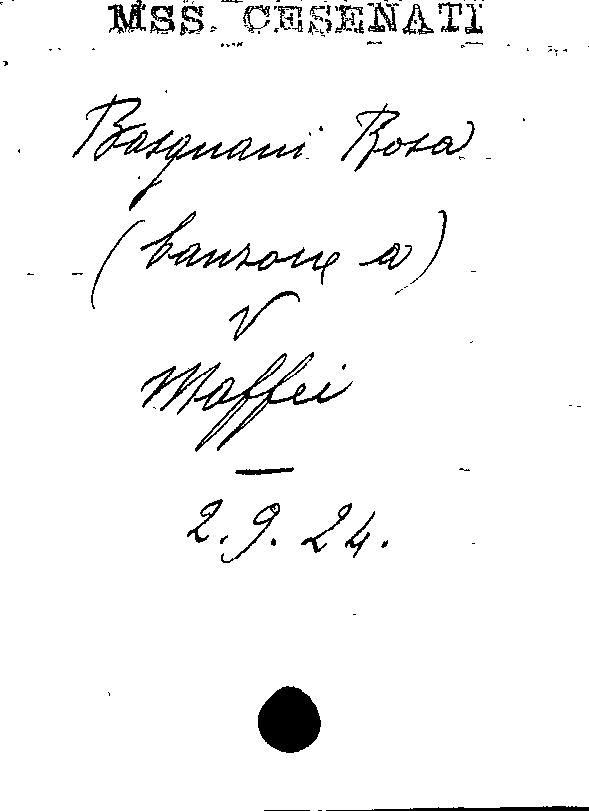 MSS. CESENATI
Basgnani Rosa
(Canzone a)
V
Maffei
2.9.24.